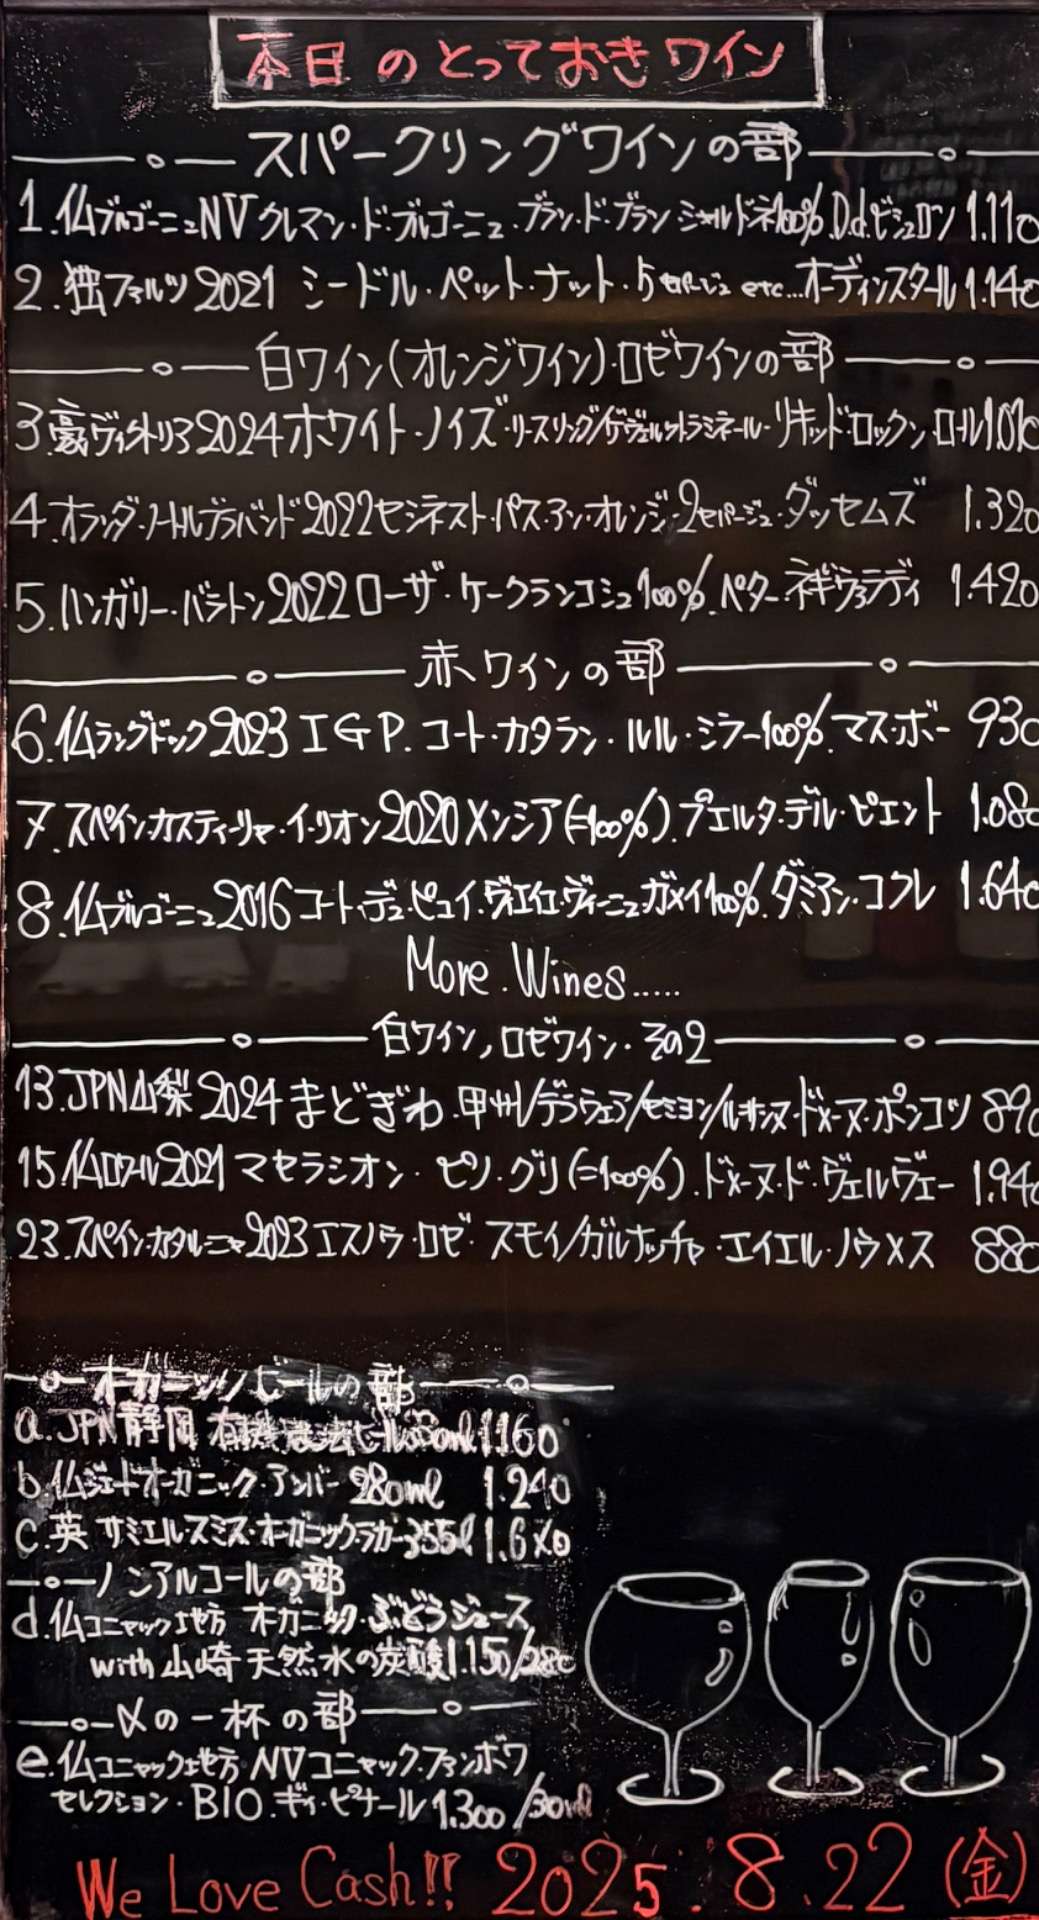 本日のとっておきワイン
スパークリングワインの部
1.仏ブルゴーニュNVクレマン・ド・ブルゴーニュ・ブラン・ド・ブランシャルドネ100%.D.d.ビシュロン 1.110
2.独ファルツ2021 シードル・ペット・ナット・5セパージュ etc...オーディンスタール 1.140
白ワイン(オレンジワイン)・ロゼワインの部
3.豪ヴィクトリア2024ホワイト・ノイズ・リースリング/ゲヴュルツトラミネール・リキッド・ロックン・ロール 1.010
4.オランダ・ノートルブラバンド2022セシネスト・パス・アン・オレンジ・2セパージュ・ダッセムズ 1.320
5.ハンガリー・バラトン2022ローザ・ケークフランコシュ100%.ペター・ネギヴァラディ 1.420
赤ワインの部
6.仏ラングドック2023 IGP.コート・カタラン・ルル・シラー100%.マス・ボー 930
7.スペイン・カスティーリャ・イ・リオン2020メンシア(=100%).プエルタ・デル・ビエント 1.080
8.仏ブルゴーニュ2016コート・デュ・ピュイ・ヴィエイユ・ヴィーニュ・ガメイ100%.ダミアン・コクレ 1.640
More.Wines.....
白ワイン,ロゼワイン・その2
13.JPN山梨2024まどぎわ.甲州/デラウェア/セミヨン/ルーサンヌ・ドメーヌ・ポンコツ 890
15.仏ロワール2021マセラシオン・ピノ・グリ(=100%).ドメーヌ・ド・ヴェルヴェー 1.940
23.スペイン・カタルーニャ2023エスノラ・ロゼ・スモイ/ガルナッチャ・エイエル・ノウメス 880
オーガニックビールの部
a.JPN静岡 有機農法ビール 1.160
b.仏ジェードオーガニック・アンバー 280ml 1.240
c.英 サミエル・スミス・オーガニックラガー355l 1.6
ノンアルコールの部
d.仏コニャック地方 オーガニック・ぶどうジュース
with山崎天然水の炭酸 1.150/280
〆の一杯の部
e.仏コニャック地方 NVコニャック・ファンボワ
セレクション・BIO.ギィ・ピナール 1.300/30ml
We Love Cash!! 2025.8.22(金)